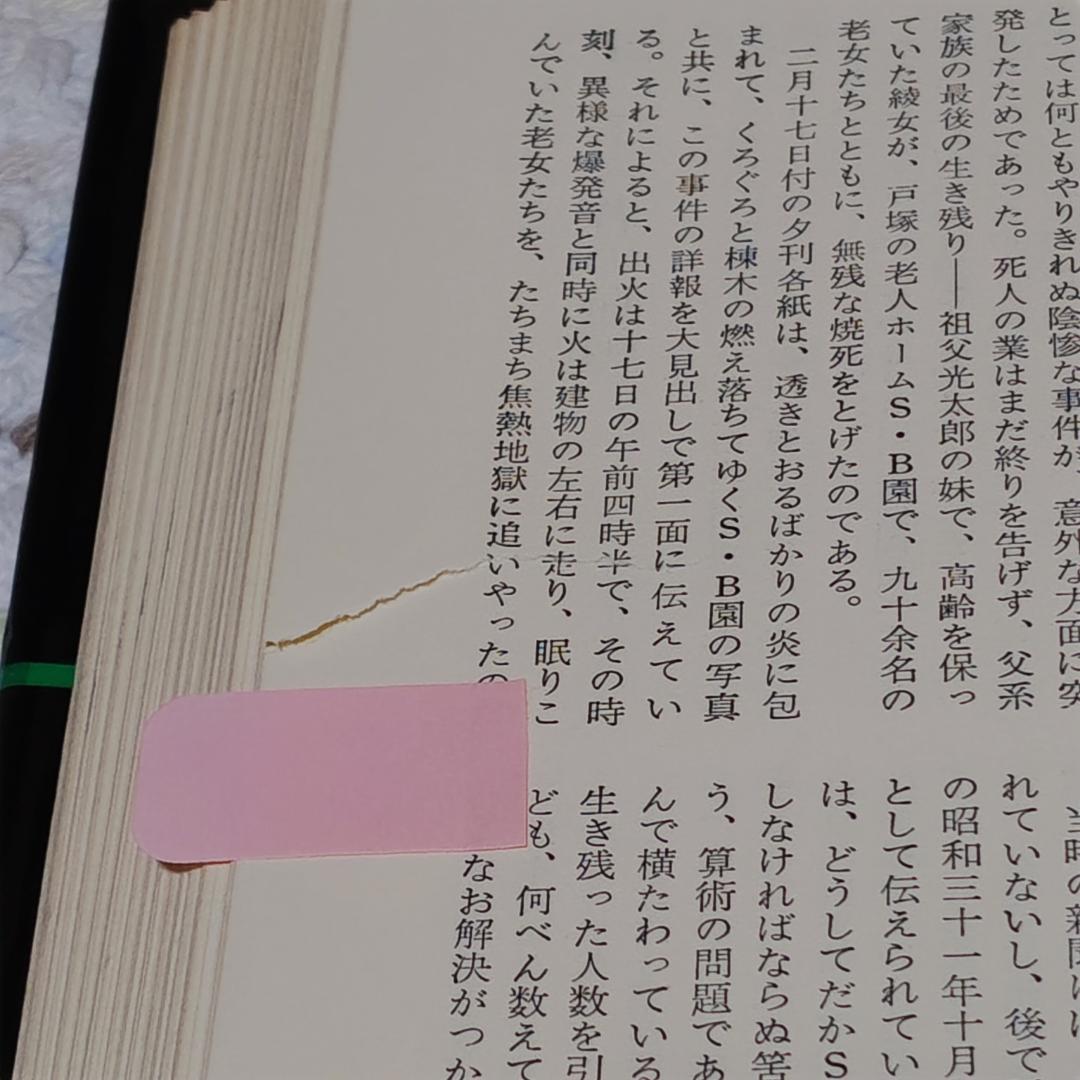 とっては何ともやりきれぬ陰惨な事件が、意外な方面に突
発したためであった。死人の業はまだ終りを告げず、父系
家族の最後の生き残り――祖父光太郎の妹で、高齢を保っ
ていた綾女が、戸塚の老人ホームS・B園で、九十余名の
老女たちとともに、無残な焼死をとげたのである。
二月十七日付の夕刊各紙は、透きとおるばかりの炎に包
まれて、くろぐろと棟木の燃え落ちてゆくS・B園の写真
と共に、この事件の詳報を大見出しで第一面に伝えてい
る。それによると、出火は十七日の午前四時半で、その時
刻、異様な爆発音と同時に火は建物の左右に走り、眠りこ
んでいた老女たちを、たちまち焦熱地獄に追いやったの
当時の新聞に
れていないし、後で
の昭和三十一年十月
として伝えられてい
は、どうしてだかS
しなければならぬ筈
う、算術の問題であ
んで横たわっている
生き残った人数を引
ども、何べん数えて
なお解決がつか